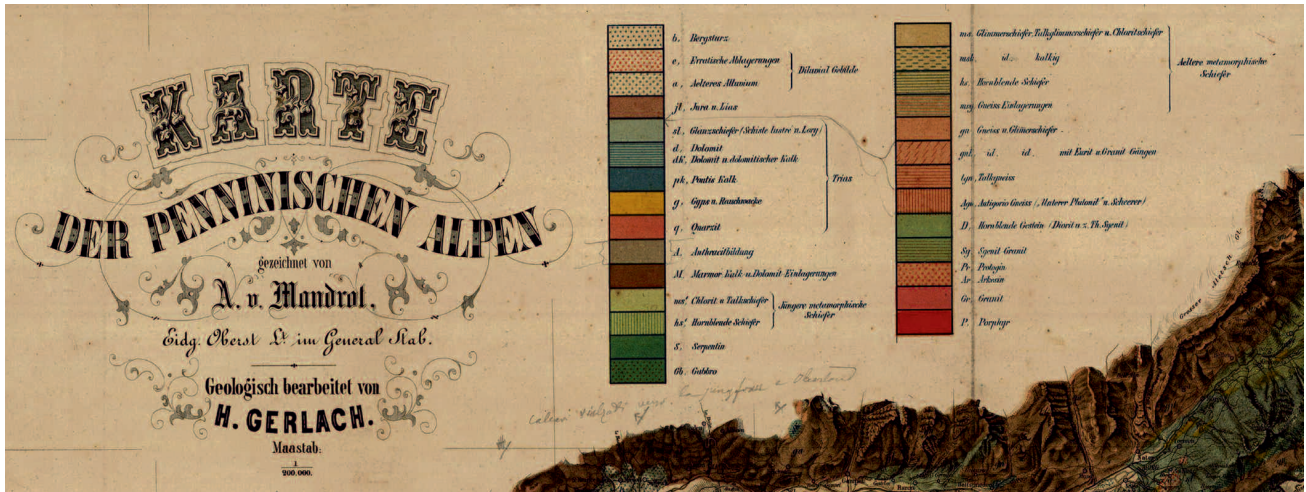 KARTE
DER PENNINISCHEN ALPEN
gezeichnet von
A. v. Mandrot.
Eidg. Oberst Lt. im General Stab.
Geologisch bearbeitet von
H. GERLACH.
Maastab:
1
200.000.
b. Bergsturz
e. Erratische Ablagerungen
a. Aelteres Alluvium
Diluvial Gebilde
jl. Jura u. Lias
sl. Glanzschiefer (Schiste lustré n. Lory)
d. Dolomit
dk. Dolomit u. dolomitischer Kalk
pk. Pontis Kalk
g. Gyps u. Rauchwacke
q. Quarzit
Trias
A. Anthracitbildung
M. Marmor Kalk u. Dolomit Einlagerungen
ms! Chlorit u. Talkschiefer
hs! Hornblende Schiefer
Jüngere metamorphische
Schiefer
S. Serpentin
Gb. Gabbro
ms. Glimmerschiefer, Talkglimmerschiefer u. Chloritschiefer
msk. id. kalkig
hs. Hornblende Schiefer
msg. Gneiss Einlagerungen
Aeltere metamorphische
Schiefer
gn. Gneiss u. Glimerschiefer
gnl. id. id. mit Eurit u. Granit Gängen
tgn. Talkgneiss
Agn. Antigorio Gneiss („Unterer Plutonit" n. Scheerer)
D. Hornblende Gestein (Diorit u. z. Th. Syenit)
Sg. Syenit Granit
Pr. Protogin
Ar. Arkesin
Gr. Granit
P. Porphyr
Grosser Aletsch Gl.
la jungfrau e Oberland